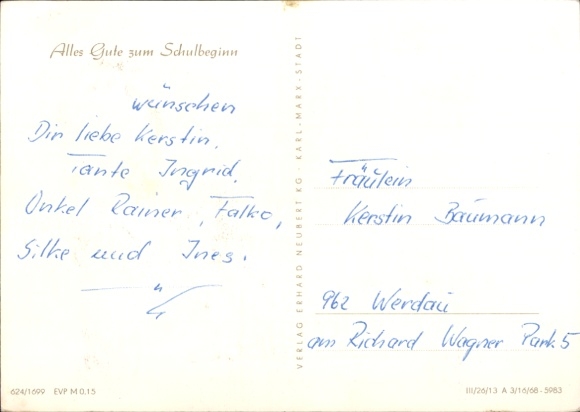 Alles Gute zum Schulbeginn
wünschen
Dir liebe Kerstin,
Tante Ingrid,
Onkel Rainer, Falko,
Silke und Ines.
Fräulein
Kerstin Baumann
962 Werdau
am Richard Wagner Park 5
VERLAG ERHARD NEUBERT KG · KARL-MARX-STADT
624/1699 EVP M 0.15
III/26/13 A 3/16/68-5983